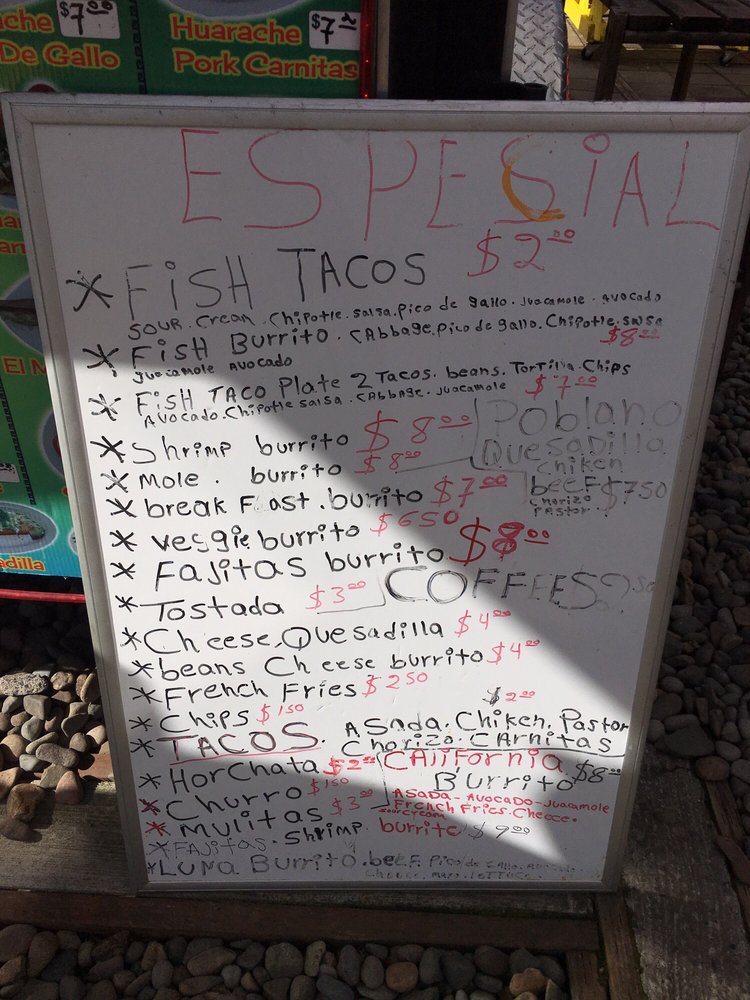 ache $7.00
De Gallo
Huarache $7
Pork Carnitas
El M
adilla
ESPESiAL
* FiSH TACOS $2.00
SOUR. Crean. Chipotle. salsa. pico de gallo. juacamole. avocado
* FisH Burrito. CAbbage. pico de gallo. Chipotle. salsa
juacamole AVocado $8.00
* FisH TACO Plate 2 Tacos. beans. TorTilla. Chips
AVocado. Chipotle salsa. CAbbage. juacamole $7.00
* Shrimp burrito $8.00
* mole. burrito $8.00
Poblano
QuesaDilla
Chiken
beeF $750
Chorizo
PASTor.
* break Fast. burrito $7.00
* Veggie burrito $650
* Fajitas burrito $8.00
COFFEES
* Tostada $3.00
* Cheese. Quesadilla $4.00
* beans Cheese burrito $4.00
* French Fries $250
* Chips $150
$2.00
* TACOS. ASada. Chiken. Pastor
Chorizo. CArnitas
* HorChata $2.00
CAliFornia
Burrito $8.00
ASADA - AVOCADO - Juacamole
French Fries. Cheece.
sour cream
* Churro $150
* Mulitas $3.00
* FAjitas. Shrimp burrito $9.00
* LUNA Burrito. beeF. Pico de Gallo. Avocado.
Cheece. mayo. leTTuce.